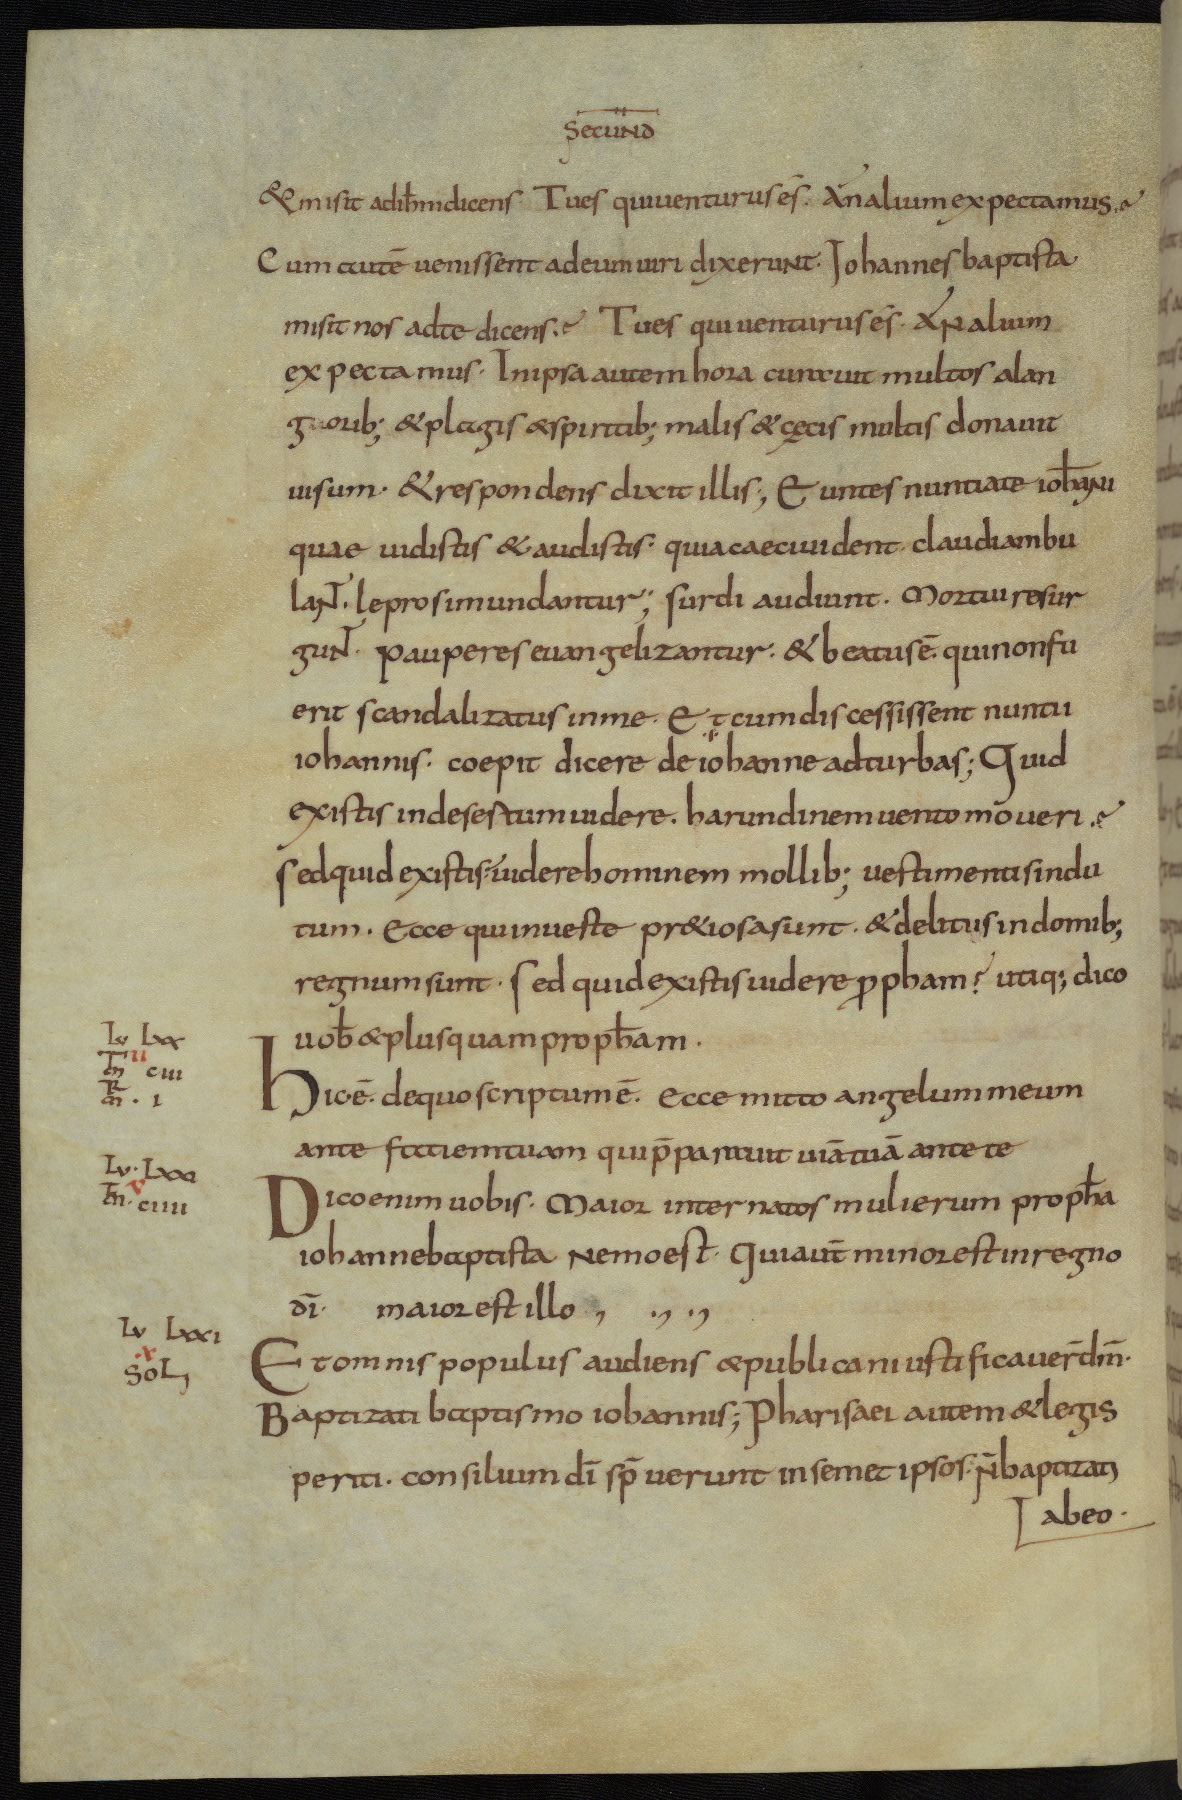 Secund̄
& misit ad ih̄m dicens· Tu es qui uenturus es̄. An alium expectamus·
Cum autē uenissent ad eum uiri dixerunt· Iohannes baptista
misit nos ad te dicens· Tu es qui uenturus es̄· An alium
expectamus· In ipsa autem hora curauit multos a lan
guorib; & plagis & spiritib; malis & cęcis multis donauit
uisum· & respondens dixit illis; Euntes nuntiate ioh̄anni
quae uidistis & audistis· quia caeci uident· claudi ambu
lant· leprosi mundantur; surdi audiunt· Mortui resur
gunt· pauperes euangelizantur· & beatus ē· qui non fu
erit scandalizatus in me· Et cum discessissent nuntii
iohannis· coepit dicere de iohanne ad turbas; Quid
existis in desertum uidere· harundinem uento moueri·
sed quid existis· uidere hominem mollib; uestimentis indu
tum· Ecce qui in ueste pr&iosa sunt· & delitiis in domib;
regnum sunt· Sed quid existis uidere proph̄am? utiq; dico
uob̄ & plus quam proph̄am·
Hic ē· de quo scriptum ē· Ecce mitto angelum meum
ante faciem tuam qui p̄parauit uiā tuā ante te
Dico enim uobis· Maior inter natos mulierum proph̄a
iohanne baptista nemo est· Qui aut̄ minor est in regno
dī· maior est illo
Et omnis populus audiens & publicani iustificauer̄ dm̄·
Baptizati baptismo iohannis; Pharisaei autem & legis
periti· consilium dī sp̄uerunt in semet ipsos· n̄ baptizati
ab eo·
Lv Lxx
II
m̄ ciii
m̄r· i
Lv· Lxxi
v
m̄· ciiii
Lv Lxxi
x
SoL